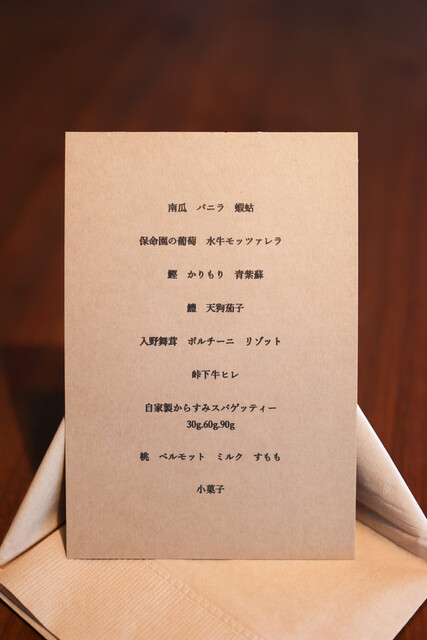 南瓜　バニラ　蝦蛄
保命園の葡萄　水牛モッツァレラ
鰹　かりもり　青紫蘇
鱧　天狗茄子
入野舞茸　ポルチーニ　リゾット
峠下牛ヒレ
自家製からすみスパゲッティー
30g.60g.90g
桃　ベルモット　ミルク　すもも
小菓子